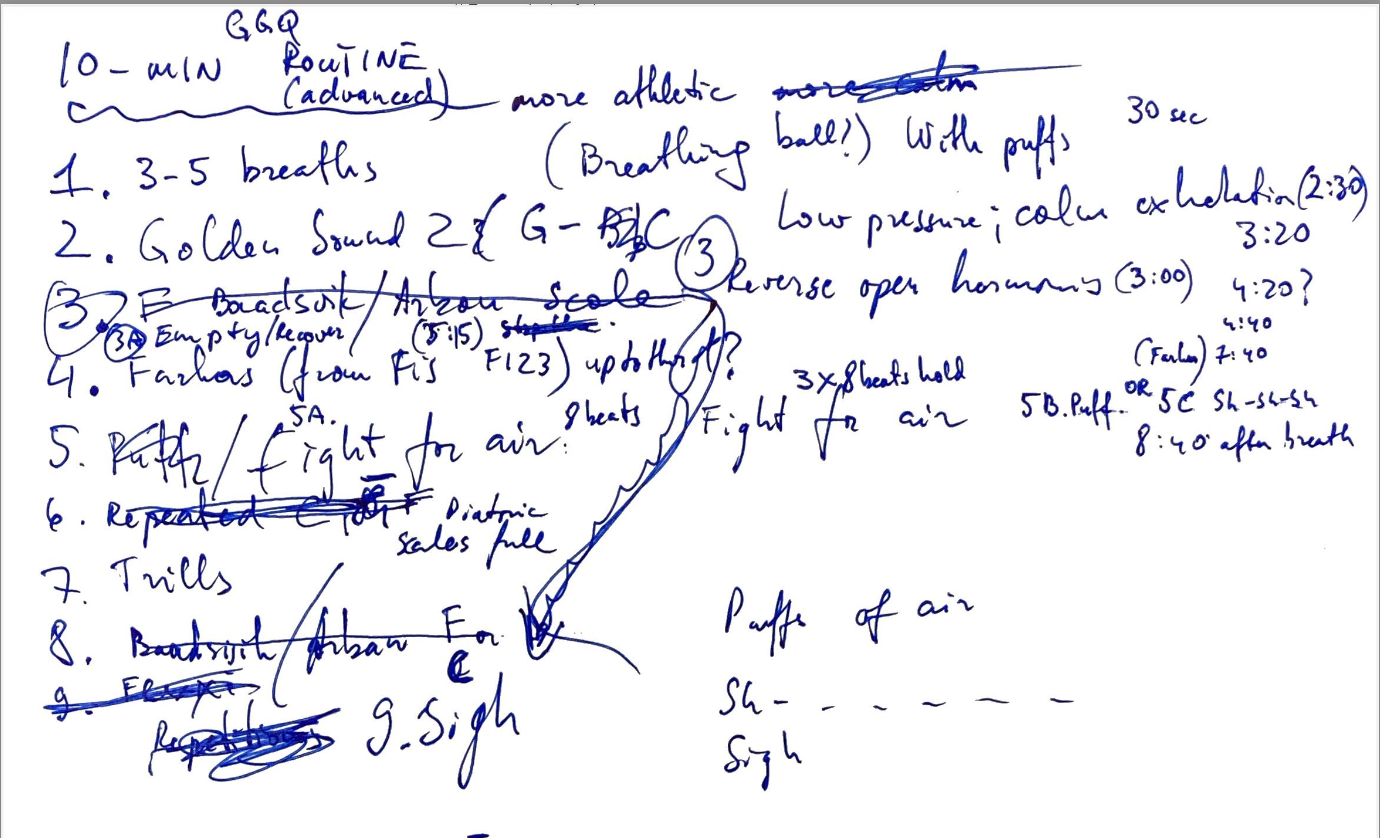 GGQ
10-MIN ROUTINE
(advanced) more athletic more calm
30 sec
1. 3-5 breaths (Breathing ball?) With puffs
2. Golden Sound 2 { G- C Low pressure; calm exhalation (2:30)
3:20
3. F Baadsvik/Arban Scale 3 Reverse open harmonis (3:00) 4:20?
3A Empty/Recover (5:15)
4:40
4. Farkas (from Fis F123) up to thrgt? (Farkas) 7:40
3x8beats hold
5. Puffs/Fight for air: 5A. 8 beats Fight for air 5B. Puff. OR 5C Sh-sh-sh
8:40 after breath
6. Repeated F Diatonic
scales full
7. Trills
8. Baadsvik/Arban F or
C
9.
Repetitions 9. Sigh
Puffs of air
Sh- - - - - - -
Sigh